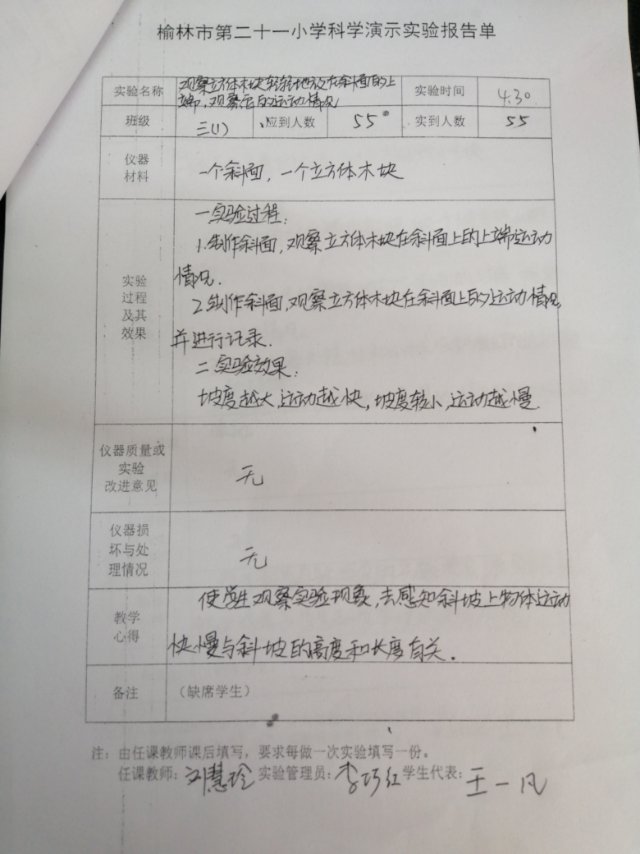 榆林市第二十一小学科学演示实验报告单
实验名称 观察立方体木块轻轻地放在斜面的上 实验时间 4.30
端,观察它的运动情况
班级 三(1) 应到人数 55 实到人数 55
仪器
材料
一个斜面,一个立方体木块
实验
过程
及其
效果
一实验过程:
1.制作斜面,观察立方体木块在斜面上的上端运动
情况.
2.制作斜面,观察立方体木块在斜面上的运动情况
并进行记录.
二实验效果:
坡度越大,运动越快,坡度较小,运动越慢
仪器质量或
实验
改进意见
无
仪器损
坏与处
理情况
无
教学
心得
使学生观察实验现象,去感知斜坡上物体运动
快慢与斜坡的高度和长度有关.
备注 (缺席学生)
注:由任课教师课后填写,要求每做一次实验填写一份。
任课教师:刘慧玲 实验管理员:李巧红 学生代表:王一凡